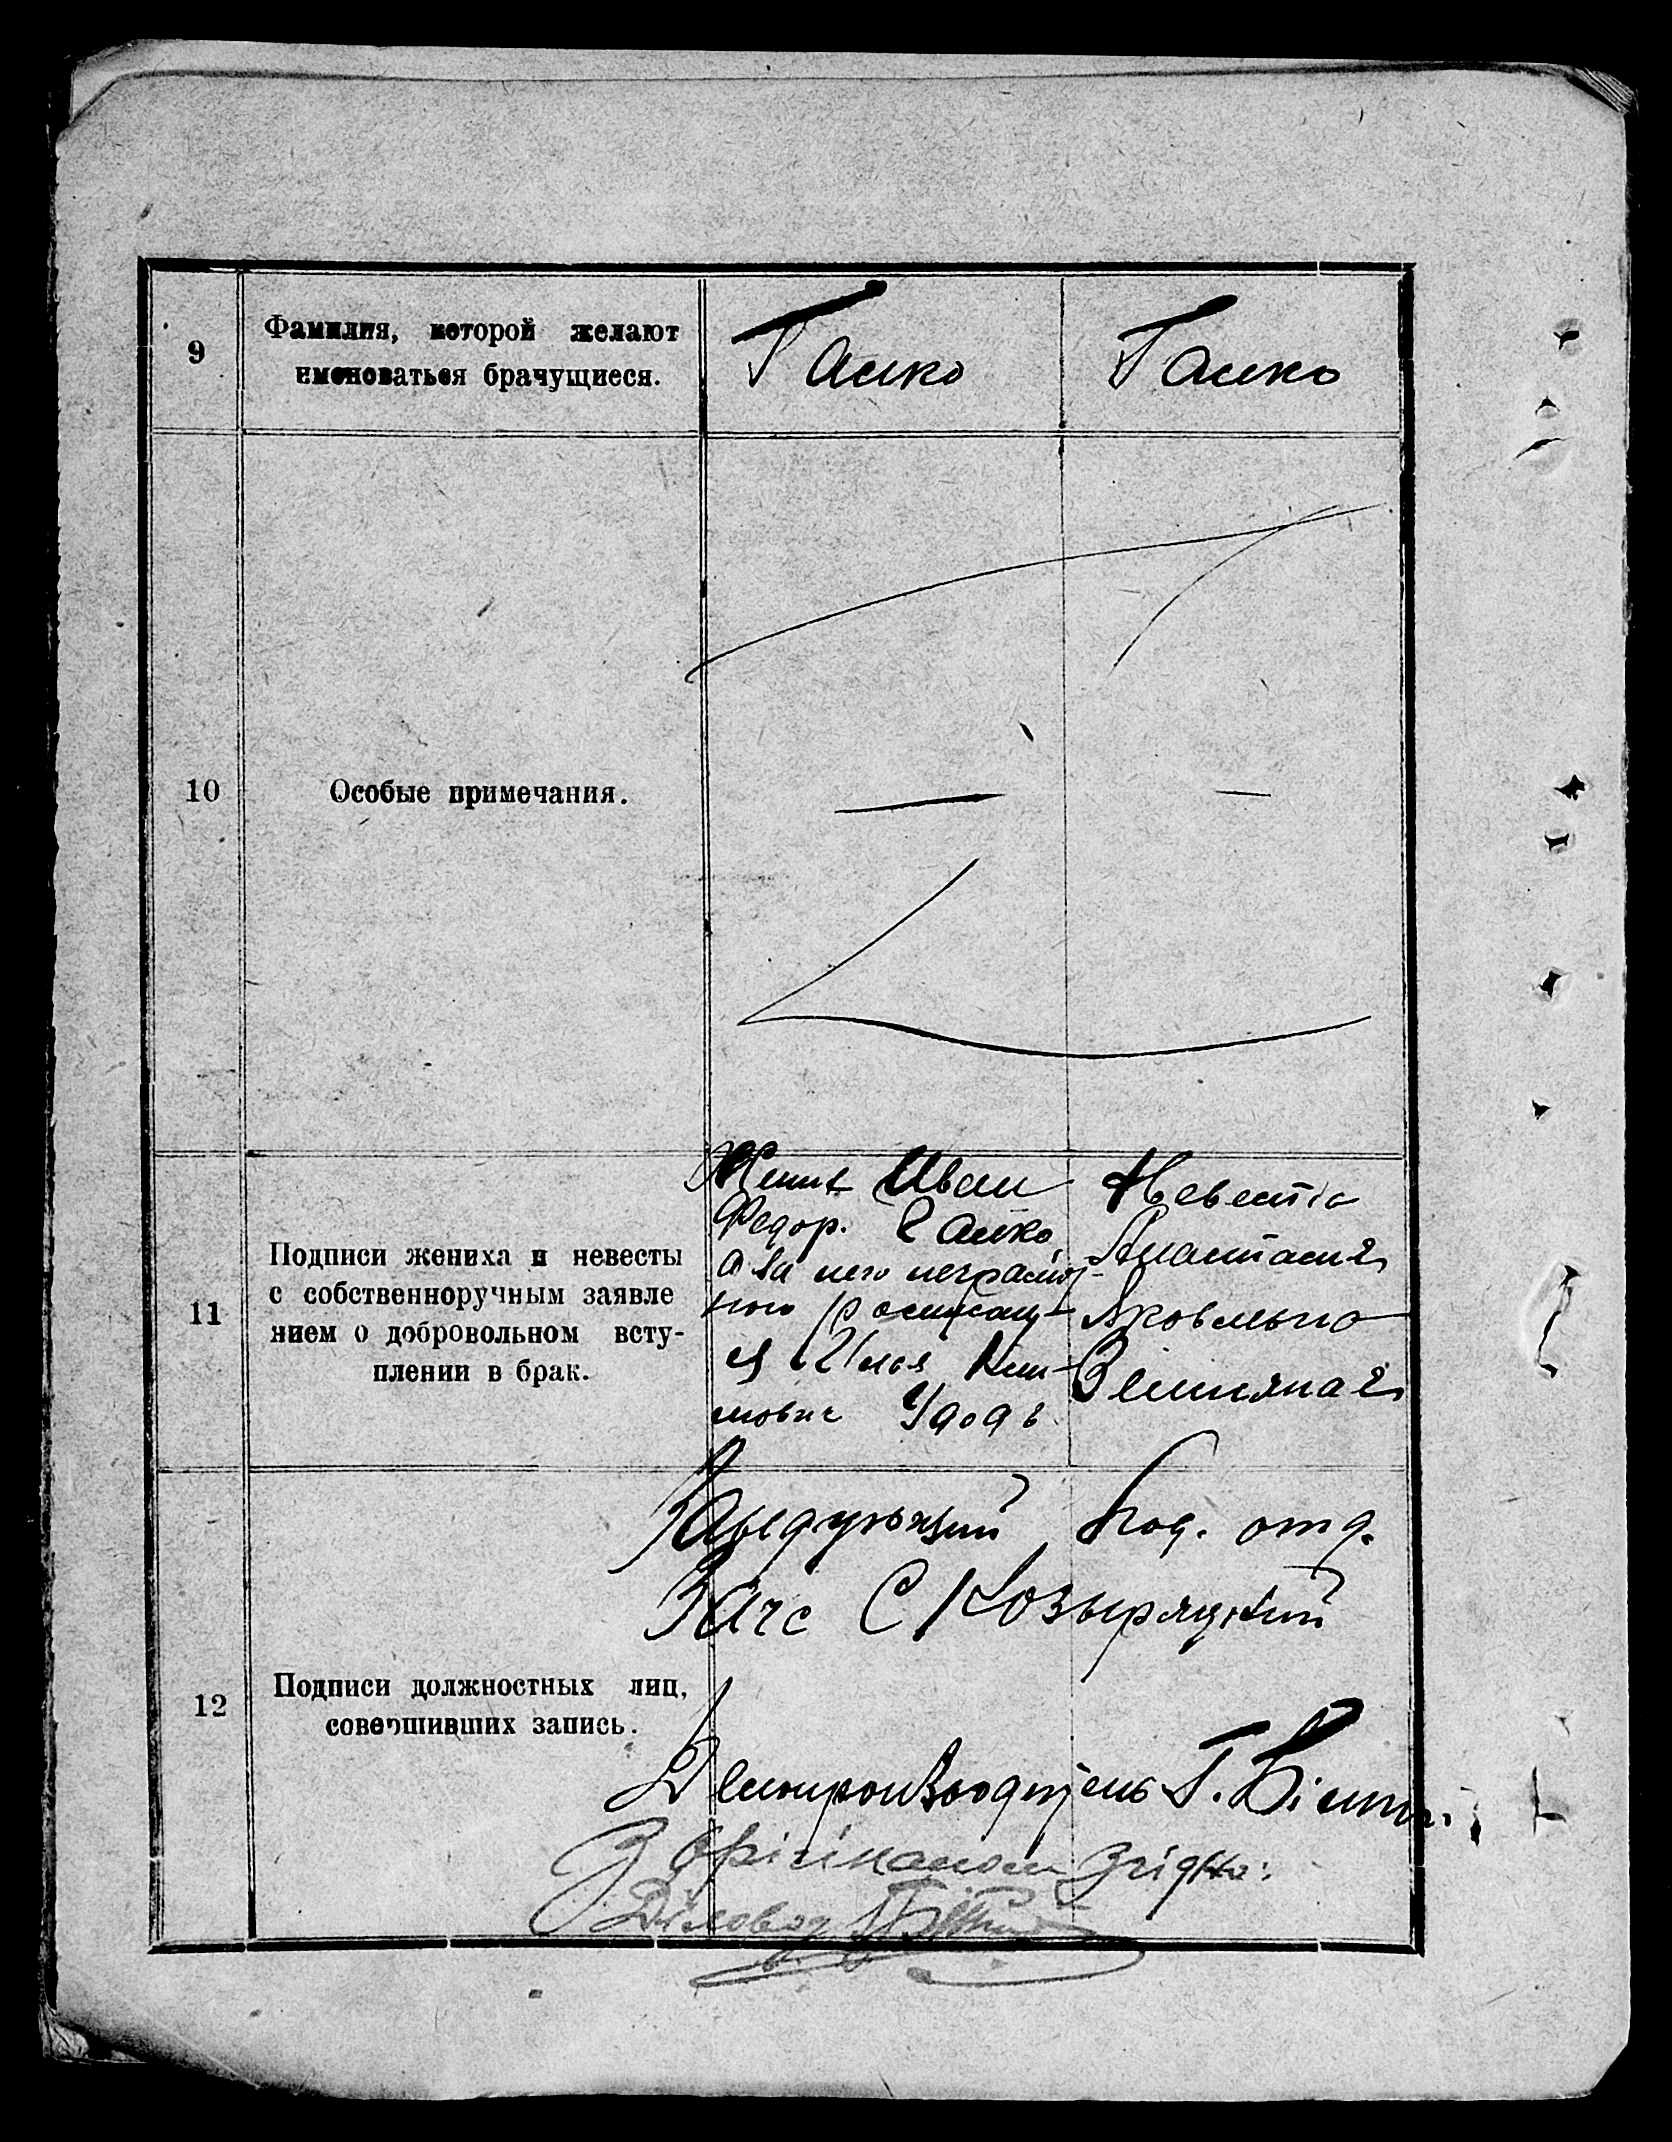 9
Фамилия, которой желают
именоваться брачущиеся.
Гайко
Гайко
10
Особые примечания.
11
Подписи жениха и невесты
с собственноручным заявле
нием о добровольном всту-
плении в брак.
Жених Иван
Федор. Гайко,
а за него неграмот-
ного росписал-
ся Илья
Невеста
Анастасия
Яковлевна
12
Подписи должностных лиц,
совершивших запись.
Заведующий Под. отд.
Загс С Козыряцкий
Делопроизводитель Г.
З оригіналом згідно:
Діловод